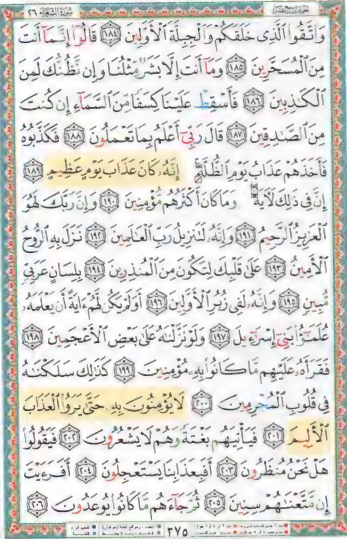 وَٱتَّقُوا۟ ٱلَّذِى خَلَقَكُمْ وَٱلْجِبِلَّةَ ٱلْأَوَّلِينَ ١٨٤ قَالُوٓا۟ إِنَّمَآ أَنتَ
مِنَ ٱلْمُسَحَّرِينَ ١٨٥ وَمَآ أَنتَ إِلَّا بَشَرٌ مِّثْلُنَا وَإِن نَّظُنُّكَ لَمِنَ
ٱلْكَـٰذِبِينَ ١٨٦ فَأَسْقِطْ عَلَيْنَا كِسَفًا مِّنَ ٱلسَّمَآءِ إِن كُنتَ
مِنَ ٱلصَّـٰدِقِينَ ١٨٧ قَالَ رَبِّىٓ أَعْلَمُ بِمَا تَعْمَلُونَ ١٨٨ فَكَذَّبُوهُ
فَأَخَذَهُمْ عَذَابُ يَوْمِ ٱلظُّلَّةِ ۚ إِنَّهُۥ كَانَ عَذَابَ يَوْمٍ عَظِيمٍ ١٨٩
إِنَّ فِى ذَٰلِكَ لَـَٔايَةً ۖ وَمَا كَانَ أَكْثَرُهُم مُّؤْمِنِينَ ١٩٠ وَإِنَّ رَبَّكَ لَهُوَ
ٱلْعَزِيزُ ٱلرَّحِيمُ ١٩١ وَإِنَّهُۥ لَتَنزِيلُ رَبِّ ٱلْعَـٰلَمِينَ ١٩٢ نَزَلَ بِهِ ٱلرُّوحُ
ٱلْأَمِينُ ١٩٣ عَلَىٰ قَلْبِكَ لِتَكُونَ مِنَ ٱلْمُنذِرِينَ ١٩٤ بِلِسَانٍ عَرَبِىٍّ
مُّبِينٍ ١٩٥ وَإِنَّهُۥ لَفِى زُبُرِ ٱلْأَوَّلِينَ ١٩٦ أَوَلَمْ يَكُن لَّهُمْ ءَايَةً أَن يَعْلَمَهُۥ
عُلَمَـٰٓؤُا۟ بَنِىٓ إِسْرَٰٓءِيلَ ١٩٧ وَلَوْ نَزَّلْنَـٰهُ عَلَىٰ بَعْضِ ٱلْأَعْجَمِينَ ١٩٨
فَقَرَأَهُۥ عَلَيْهِم مَّا كَانُوا۟ بِهِۦ مُؤْمِنِينَ ١٩٩ كَذَٰلِكَ سَلَكْنَـٰهُ
فِى قُلُوبِ ٱلْمُجْرِمِينَ ٢٠٠ لَا يُؤْمِنُونَ بِهِۦ حَتَّىٰ يَرَوُا۟ ٱلْعَذَابَ
ٱلْأَلِيمَ ٢٠١ فَيَأْتِيَهُم بَغْتَةً وَهُمْ لَا يَشْعُرُونَ ٢٠٢ فَيَقُولُوا۟
هَلْ نَحْنُ مُنظَرُونَ ٢٠٣ أَفَبِعَذَابِنَا يَسْتَعْجِلُونَ ٢٠٤ أَفَرَءَيْتَ
إِن مَّتَّعْنَـٰهُمْ سِنِينَ ٢٠٥ ثُمَّ جَآءَهُم مَّا كَانُوا۟ يُوعَدُونَ ٢٠٦
٣٧٥